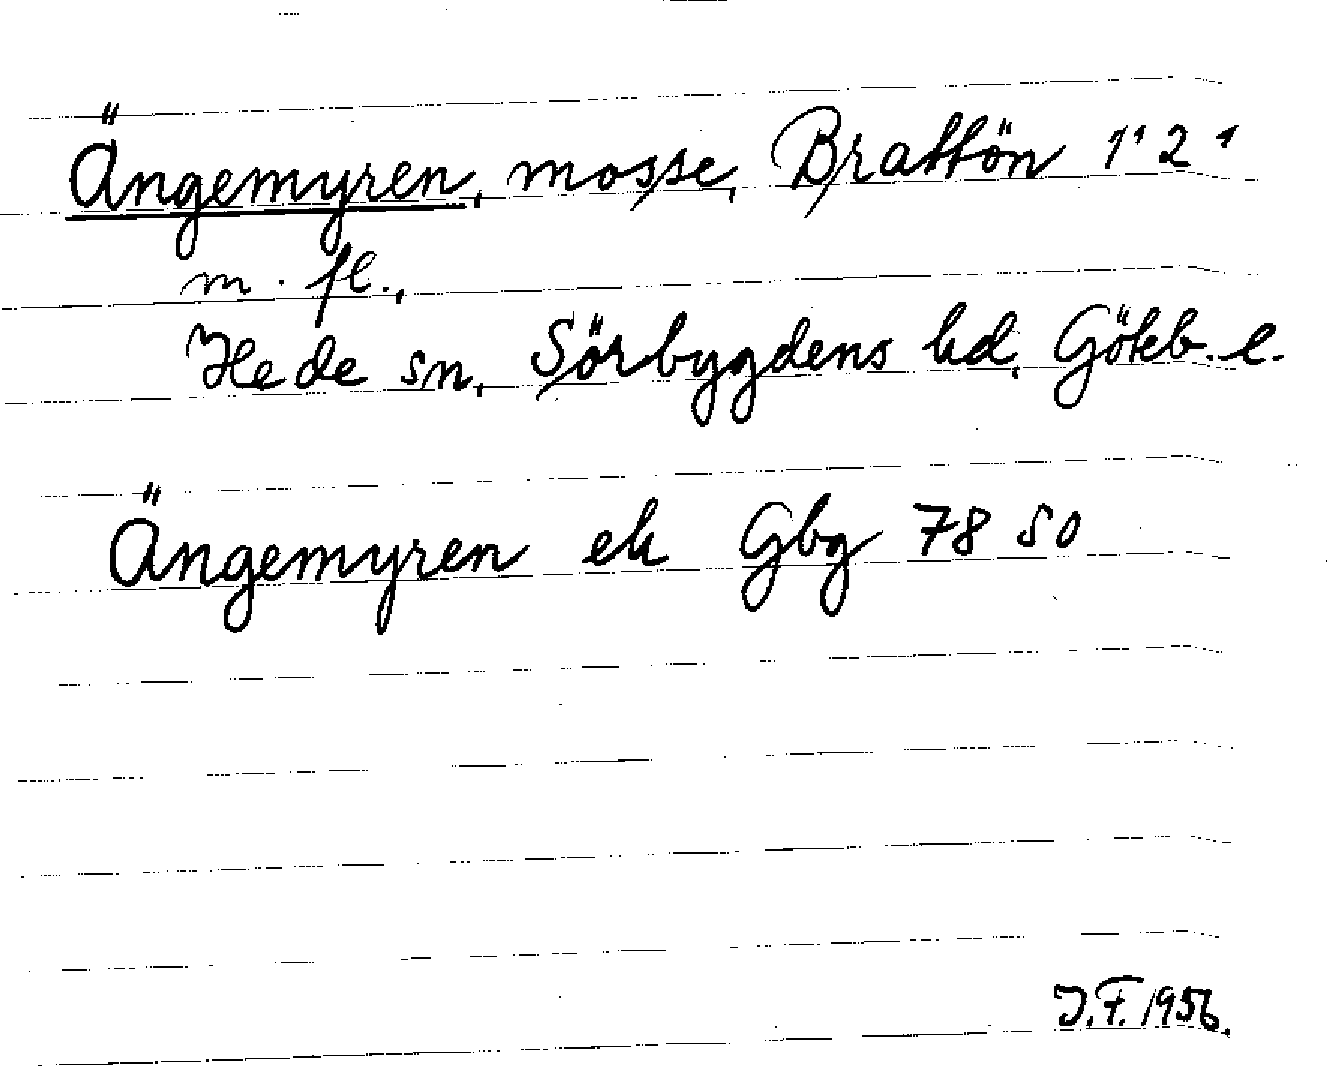 Ängemyren, mosse, Brattön 1¹ 2¹
m. fl.,
Hede sn, Sörbygdens hd, Göteb. l.
Ängemyren ek Gbg 78 SO
J.F. 1956.